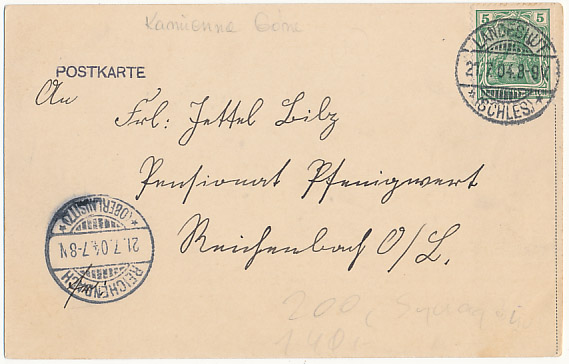 Kamienna Góra
5 5
LANDESHUT
21.7.04.8-9V.
*(SCHLES.)*
POSTKARTE
An
Frl: Jettel Bilz
Pensionat Pfenigwert
Reichenbach O/L.
*(OBERLAUSITZ)*
21.7.04.7-8N.
REICHENBACH
200
140